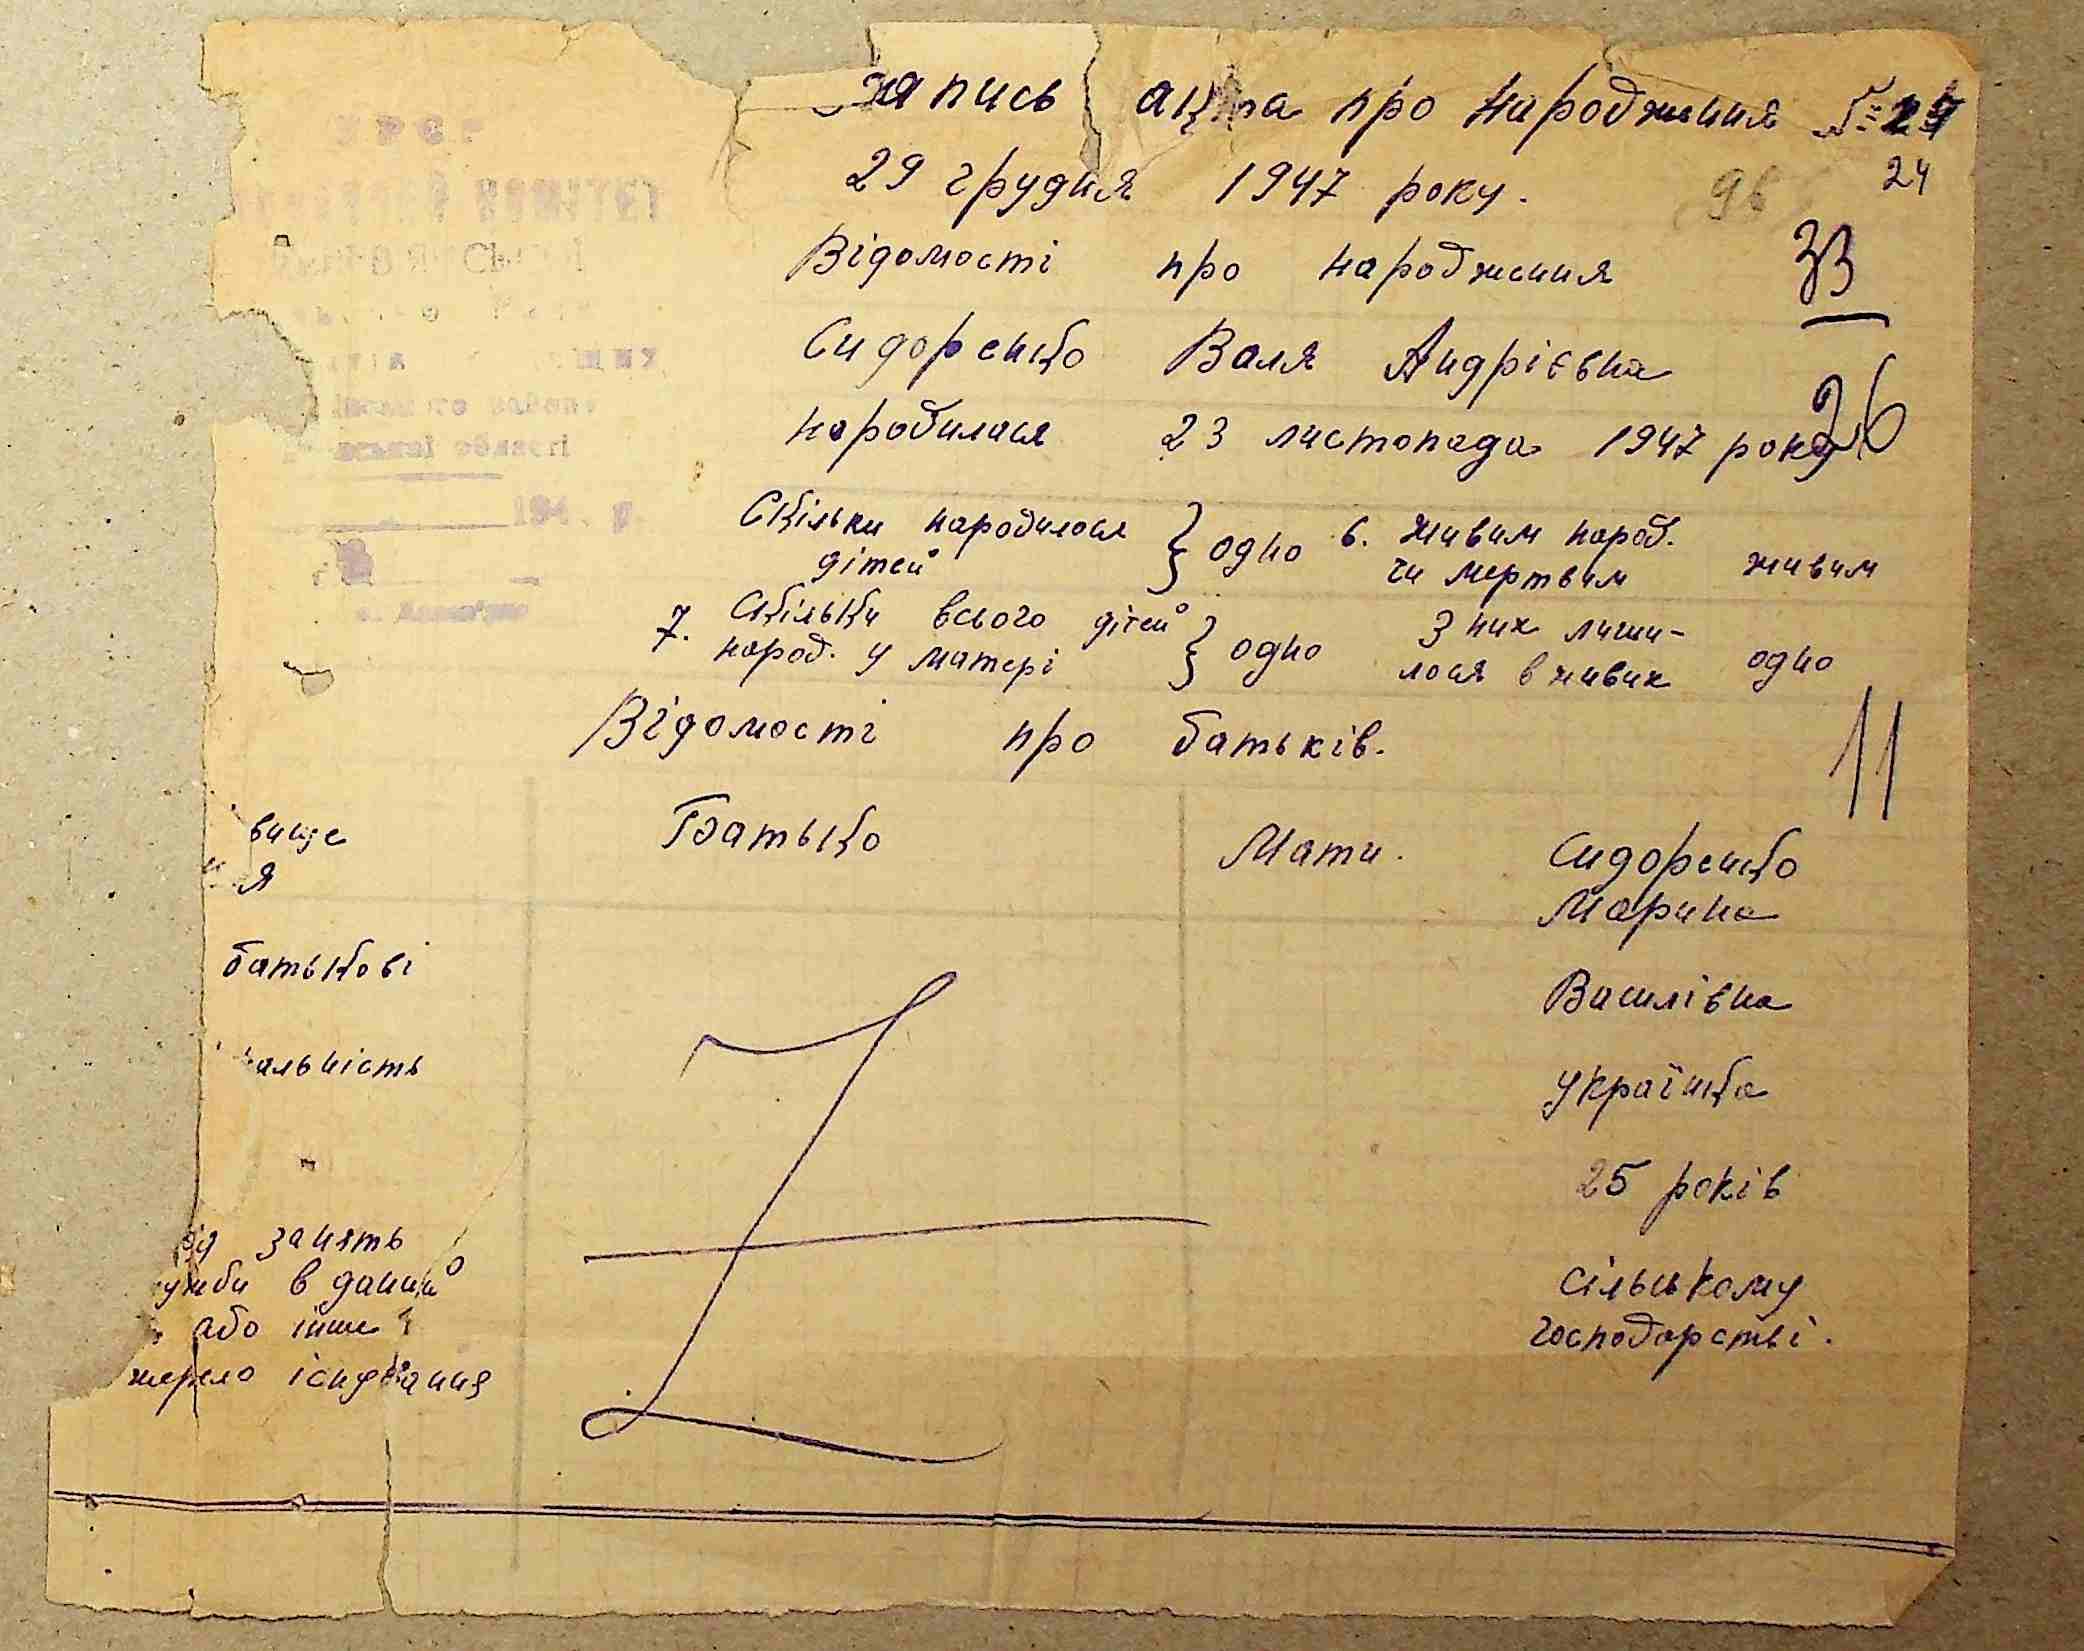 Запись акта про народження № 27
24
29 грудня 1947 року.
96
33
Відомості про народження
Сидоренко Валя Андрієвна
26
народилася 23 листопада 1947 року
Скільки народилося дітей } одно 6. живим народ. чи мертвим живим
7. Скільки всього дітей народ. у матері } одно З них лиши-лося в живих одно
Відомості про батьків.
11
вище
я
Батько
Мати.
Сидоренко
Марина
батькові
Василівна
альність
Українка
25 років
занять
ужби в даний
або інше
жерело існування
сільському
господарстві.
УРСР
області
194 . р.